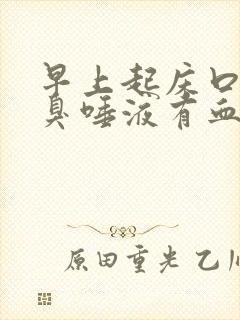 早上起床口
臭唾液有血
原田重光 乙川